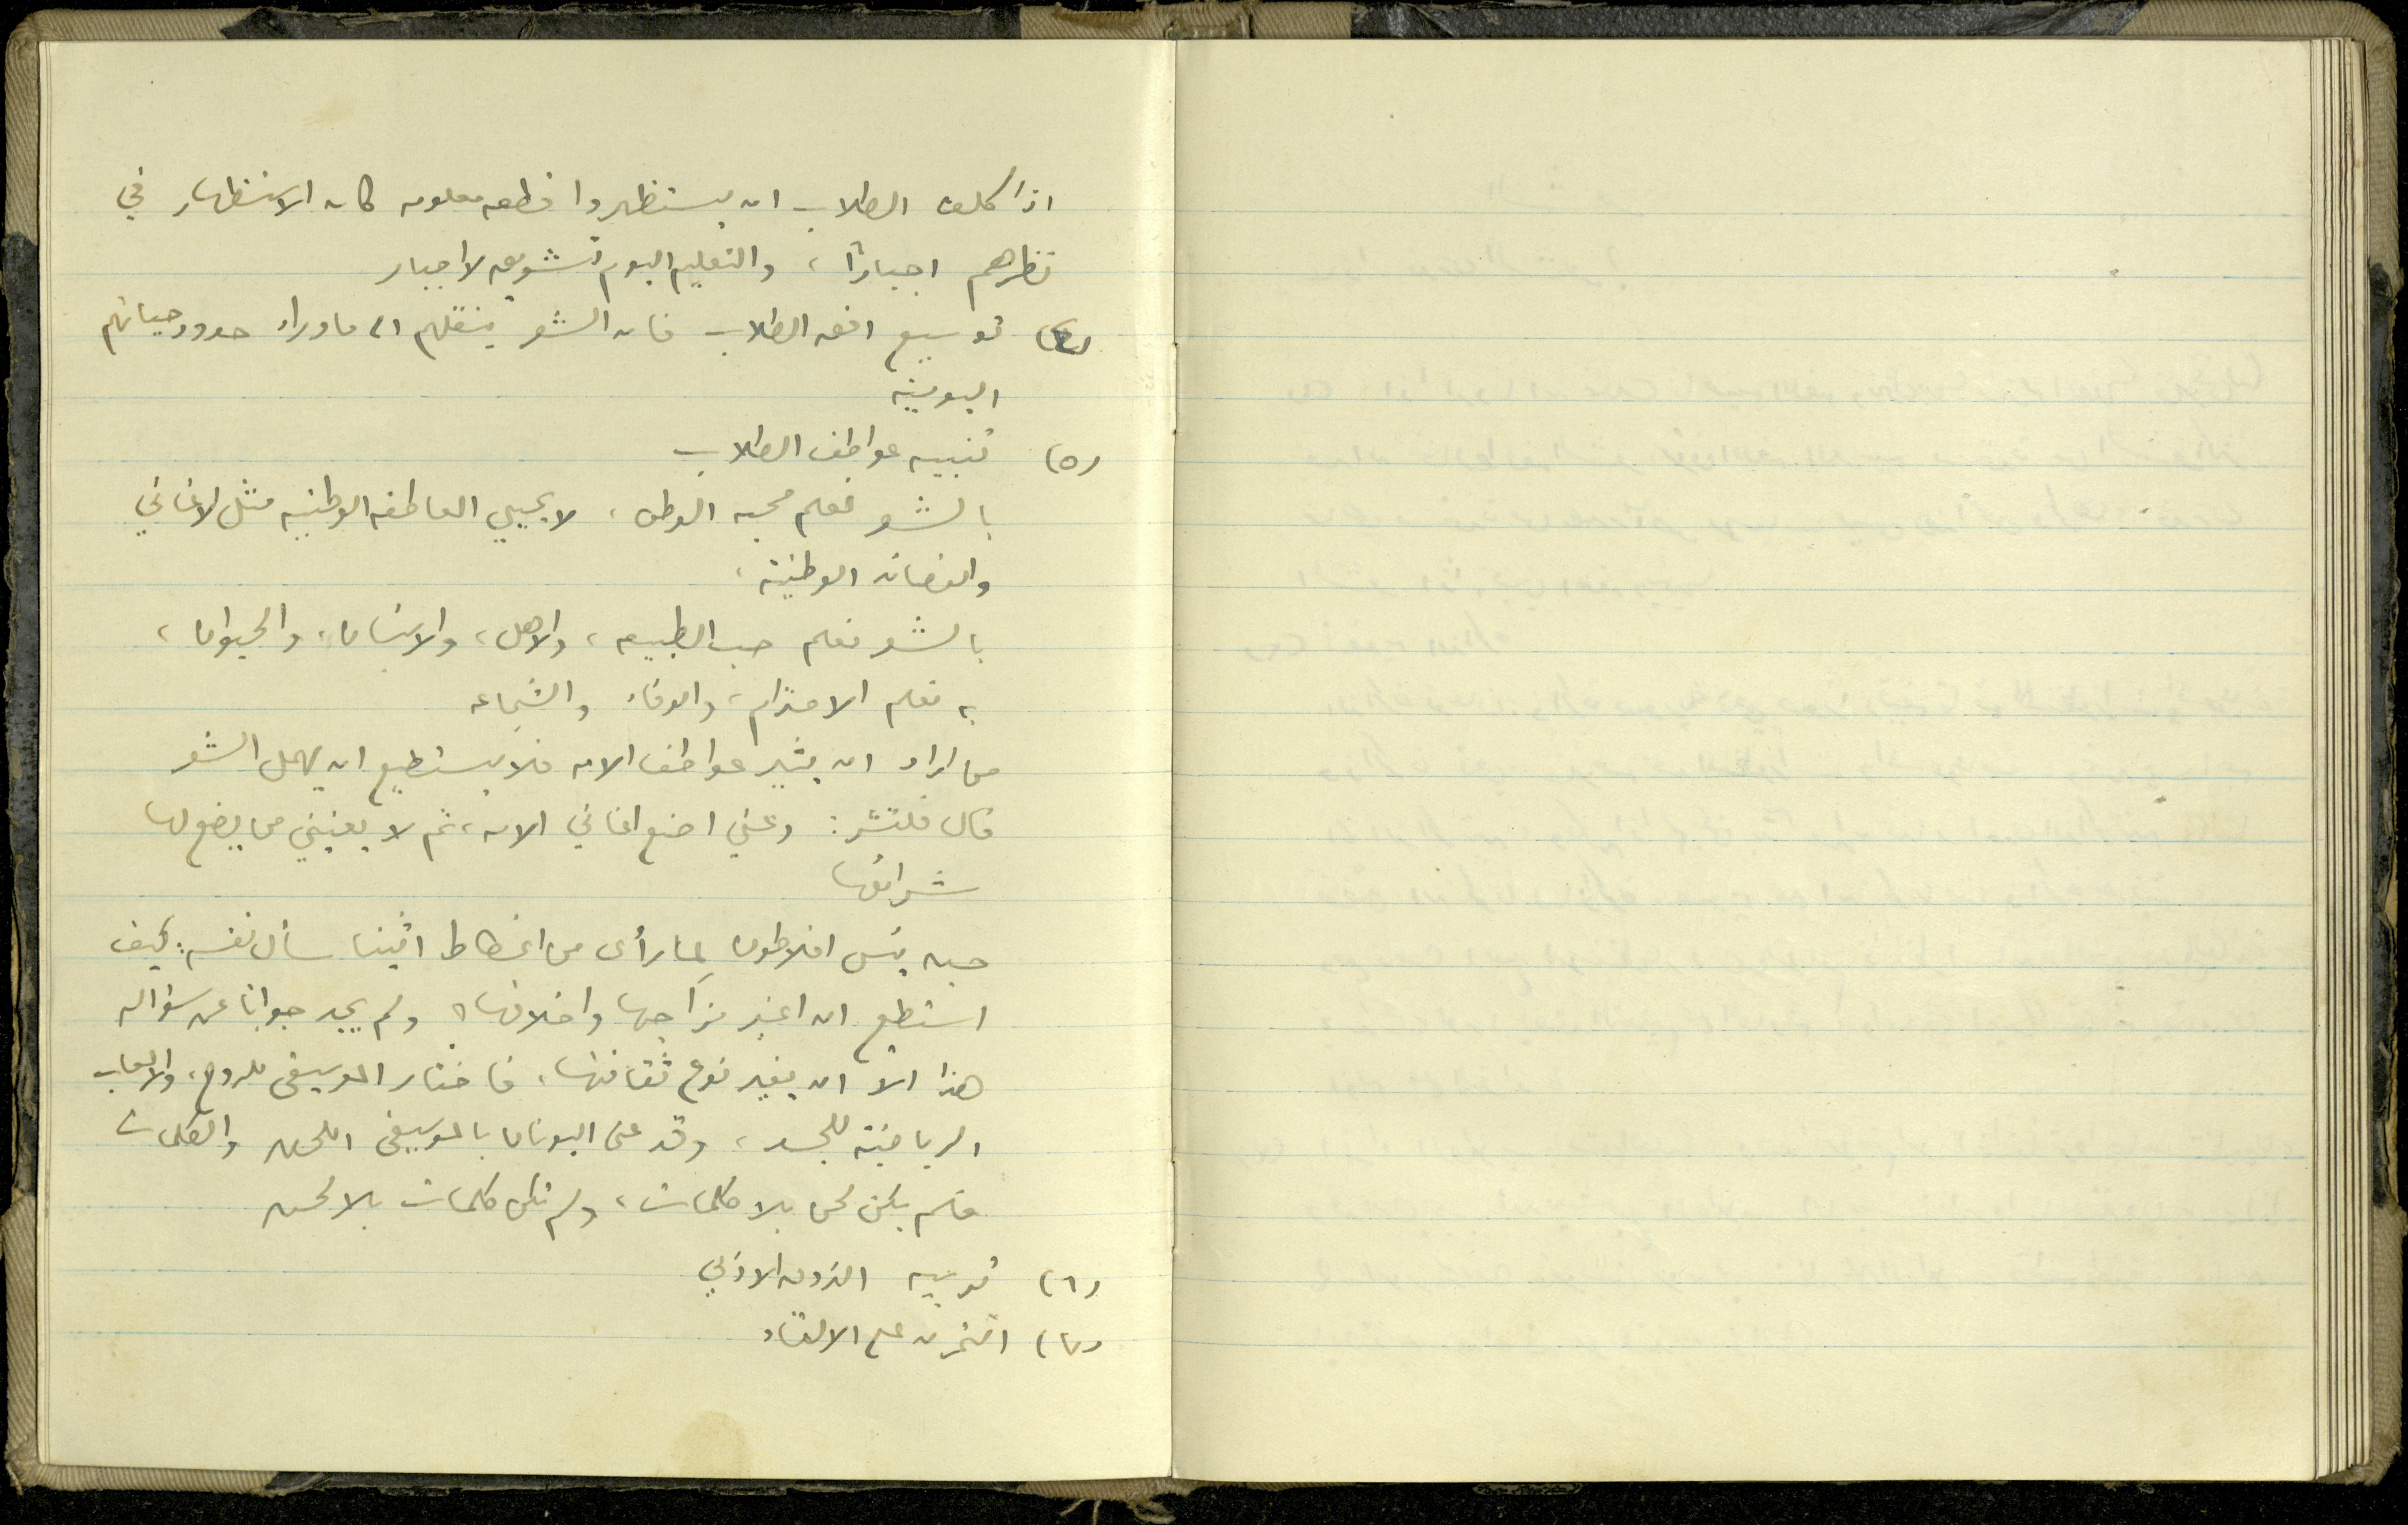 اذا كلف الطلاب ان يستظهروا قطعه معلومه كان الاستظهار في
نظرهم اجبارًا، والتعليم اليوم تشويق لا اجبار
(٤) توسيع افق الطلاب فان الشعر ينقلهم الى ما وراء حدود حياتهم
اليومية
(٥) تنبيه عواطف الطلاب
بالشعر نعلم محبه الوطن، لا يحيي العاطفه الوطنيه مثل الاغاني
والقصائد الوطنية،
بالشعر نعلم حب الطبيعه، والاهل، والانسان، والحيوان،
به نعلم الاحترام، والوفاء والشجاعه
من اراد ان يثير عواطف الامه فلا يستطيع ان يهمل الشعر
قال فلتشر: دعني اضع اغاني الامه، ثم لا يعنيني من يضع لها
شرائعها
حين يئس افلاطون لما رأى من انحطاط اثينا سأل نفسه: كيف
استطيع ان اغير مزاجها واخلاقها؟ ولم يجد جوابًا عن سؤاله
هذا الا ان يغير نوع ثقافتها، فاختار الموسيقى للروح، والالعاب
الرياضية للجسد، وقد عنى اليونان بالموسيقى اللحن والكلمات
فلم يكن لحن بلا كلمات، ولم تكن كلمات بلا لحن
(٦) تربيه الذوق الادبي
(٧) التمرن على الالقاء